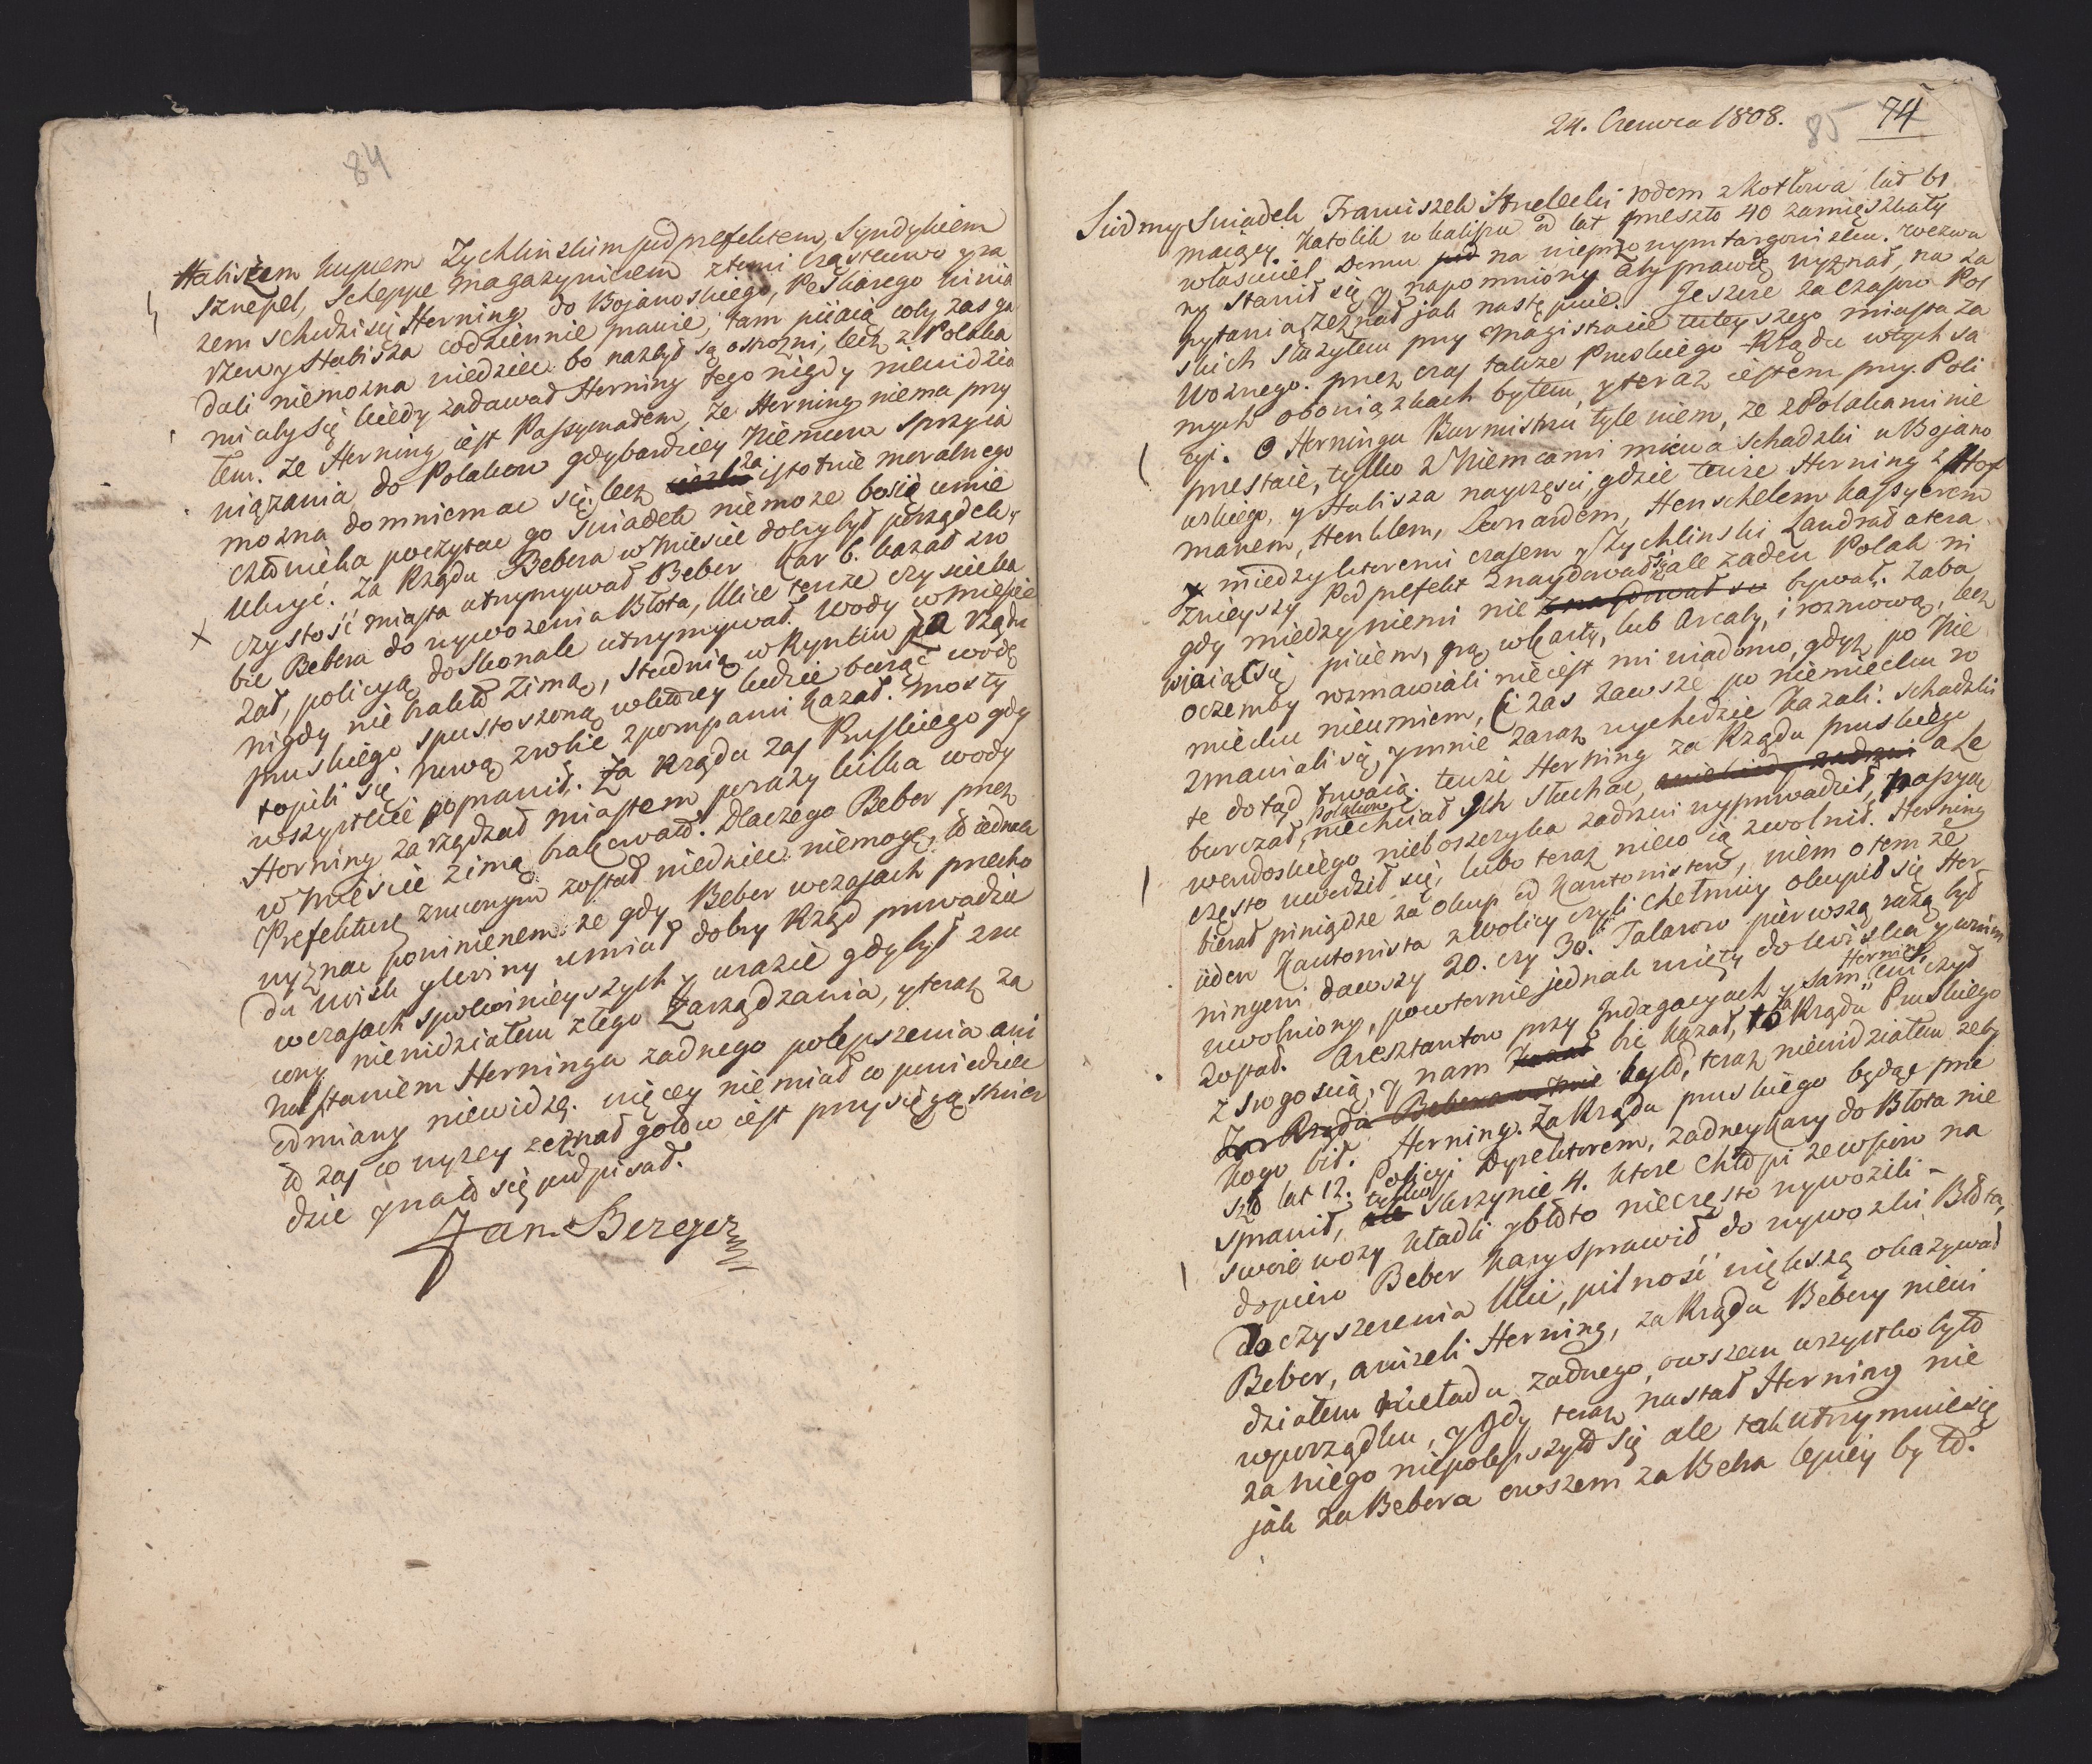 84
Haliszem kupcem Zychlinskim podprefektem, Syndykiem
Sznepel, Scheppe Magazynierem z temi częstemu y ra
zem schodzi się Herning do Bojanoskiego, Peszkarego winia
rzen y Halisza codziennie prawie, tam piiaią coby zas ga
dali niemozna wiedziec bo nazbyt są ostrozni, lecz z Polaka
mi aby się kiedy zadawał Herning tego nigdy niewidzia
łem. Ze Herning iest Passyonadem, Ze Herning niema przy
wiązania do Polakow gdy bardziey Niemcom sprzyia
mozna domniemac się, lecz za istotnie moralnego
człowieka poczytac go Swiadek niemoze bo się umie
Ukryć. Za Rządu Bebera w Miescie dobry był porządek, y
czystość miasta utrzymywał Beber Kar 6. kazał zro
bic Bebera do wywozenia Błota, Ulice tenze czyscic ka
zał, policyą doskonale utrzymywał. Wody w miescie
nigdy nie brakło Zimą, Studnią w Rynku za rządu
pruskiego spustoszoną w ktorey ludzie biorąc wodę
topili się nową zrobic z pompami kazał. mosty
wszystkie poprawił. Za Rządu zas Pruskiego gdy
Herning zarządzał miastem po razy kilka wody
w Miescie zimą brakowało. Dlaczego Beber przez
Prefekturę zrzuconym został wiedziec niemogę, to iednak
wyznac powinienem: ze gdy Beber w czasach przecho
du woysk y kwiny umiał dobry Rząd prowadzic
w czasach spokoinieyszych y wrazie gdy był zrzu
cony niewidziałem złego Zarządzania, y teraz za
nastaniem Herninga zadnego polepszenia ani
odmiany niewidzę. więcey niemiał co powiedziec
to zas co wyzey zeznał gotów iest przysięgą stwier
dzic y na to się podpisał.
Jan Berger
24. Czerwca 1808.
85 74
Siodmy Swiadek Franciszek Strzelecki rodem z Kotłowa lat 61
maiący Katolik w Kaliszu od lat przeszło 40 zamięszkały
właściciel Domu pod na nieprzonym targowisku. wezwa
ny stawił się y napomniony aby prawdę wyznał, na za
pytania zeznał jak następuie. Jeszcze za czasow Pol
skich słuzyłem przy Magistracie tuteyszego miasta za
Woznego. przez czas takze Pruskiego Rządu w tych sa
mych obowiązkach byłem, y teraz iestem przy Poli
cyi. O Herningu Burmistrzu tyle wiem, ze z Polakami nie
przestaie, tylko z Niemcami miewa schadzki u Bojano
wskiego, y Halisza nayczęsciey, gdzie tenze Herning z Hof
manem, Henklem, Leonardem, Henschelem kassyerem
miedzy ktoremi czasem y Zychlinski Landrat a tera
znieyszy Podprefekt znaydował się ale zaden Polak ni
gdy miedzy niemi nie znaydował sie bywał. Zaba
wiaią się piciem, grą w Karty, lub Arcaby, i rozmową, lecz
oczemby rozmawiali nie iest mi wiadomo, gdyz po Nie
miecku nieumiem, Ci zas zawsze po niemiecku ro
zmawiali się, y mnie zaraz wychodzic kazali: schadzki
te dotąd trwaią. tenze Herning za Rządu pruskiego
burczał, Polakow niechciał ych słuchac, a nickiedy zadrzwi a Le
wendoskiego nieboszczyka zadrzwi wyprowadził, passyą
często uwodził się, lubo teraz nieco ią zwolnił. Herning
bierał piniądze za okup od Kantonistow, wiem o tem ze
ieden Kantonista z Wolicy czyli Chełmcy okupił się Her
ningowi dawszy 20. czy 30. Talarow pierwszą razą był
uwolniony, powtornie jednak wzięty do woiska y w nim
został. Aresztantow przy Indagacyach y sam Herning cwiczył
z srogoscią, y nam kazał bić kazał, to za Rządu Pruskiego
Za Rządu Bebera w mie było, teraz niewidziałem zeby
kogo bił. Herning. Za Rządu pruskiego będąc prze
szło lat 12. Policyi Dyrektorem, zadney kary do Błota nie
sprawił, ale tylko skrzynie 4. ktore Chłopi ze wsiow na
swoie wozy kładli y błoto nieczęsto wywozili -
dopiero Beber Kary sprawił do wywozki Błota,
do czyszczenia Ulic, pilność większą okazywał
Beber, anizeli Herning, za Rządu Bebery niewi
działem nieładu zadnego, owszem wszystko było
w porządku, y gdy teraz nastał Herning nie
za niego niepolepszyło się ale tak utrzymuie się
jak za Bebera owszem za Beba lepiey było.